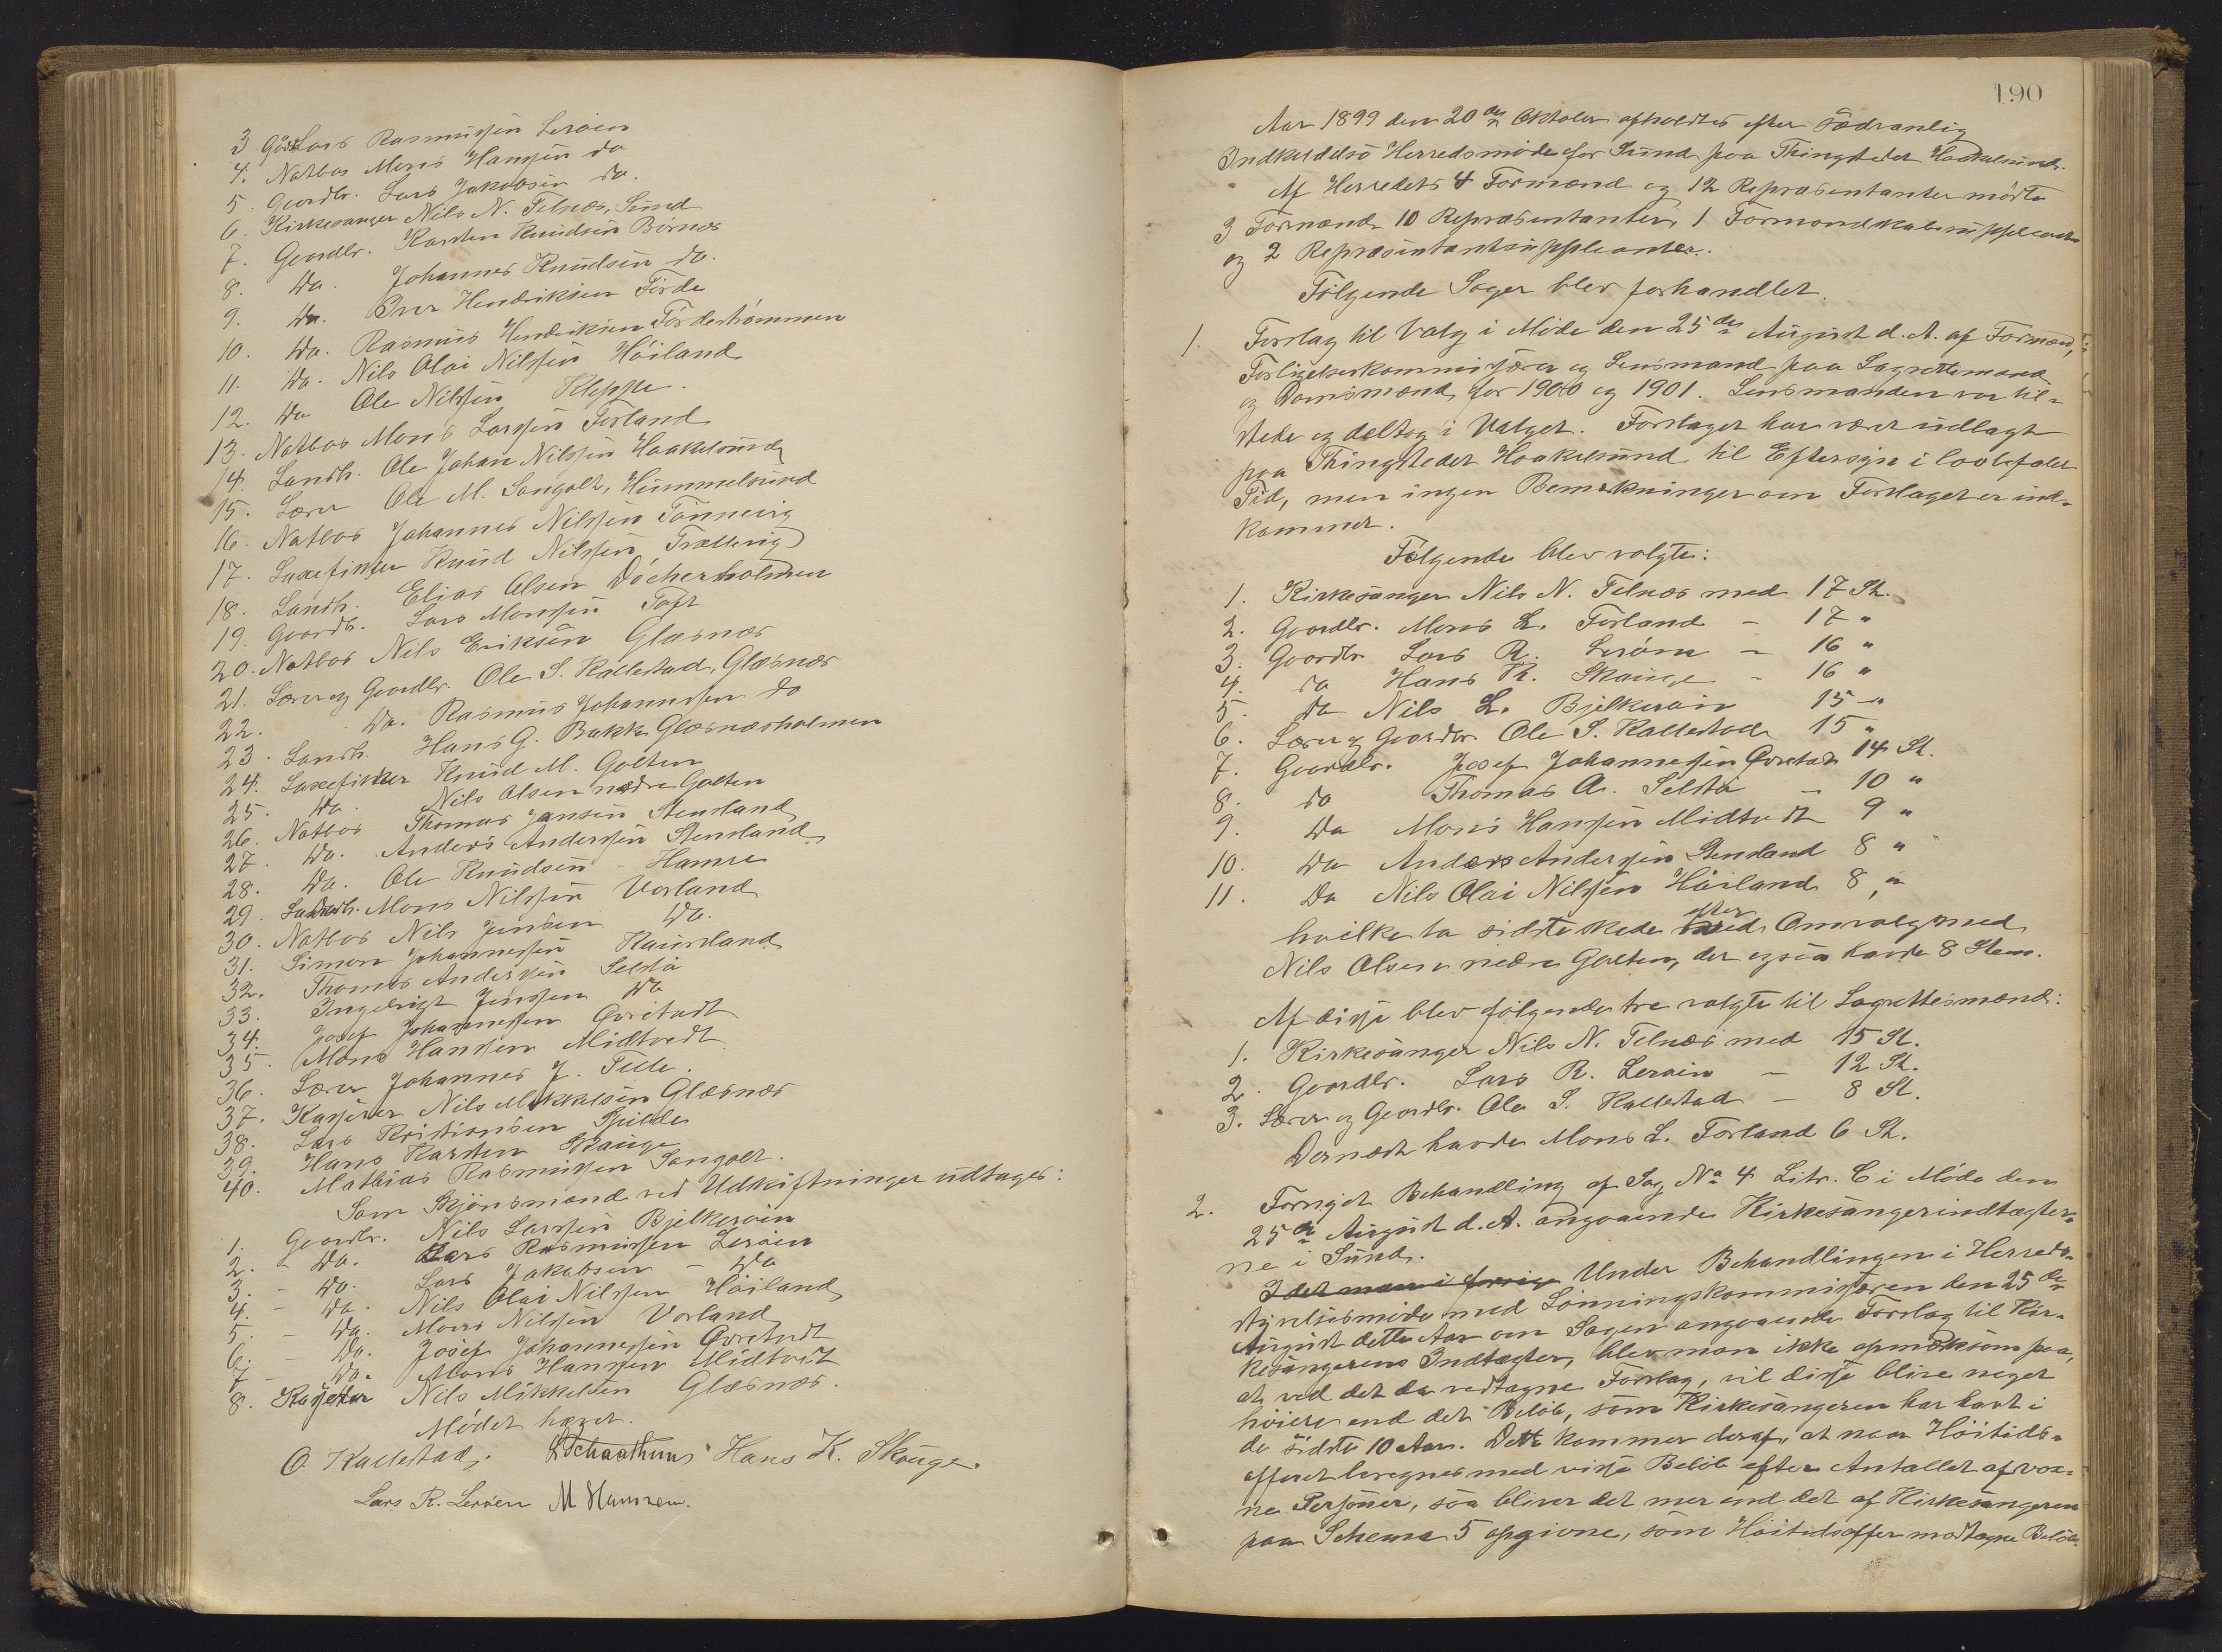 3 Gdbr Lars Rasmussen Leröen
4. Notbas Mons Hansen do
5 Gaardbr. Lars Jakobsen do.
6. Kirkesanger Nils N. Telnæs, Sund
7. Gaardbr. Karsten Knudsen Börnes
8. Do. Johannes Knudsen do.
9. Do. Iver Hendriksen Förde
10. Do. Rasmus Hendriksen Fördeströmmen
11. Do. Nils Olai Nilssen Höiland
12. Do Ole Nilssen Kleppe.
13. Notbas Mons Larssen Forland
14. Landh. Ole Johan Nilssen Haakelsund
15. Lærer Ole M. Sangolt, Hummelsund
16. Notbas Johannes Nilssen Tönnevig
17. Laxefisker Knud Nilssen Trællevig
18. Landh. Elias Olsen Döcherholmen
19. Gaardb. Lars Monssen Toft
20. Notbas Nils Eriksen Glæsnæs
21. Lærer og Gaardbr. Ole S. Kallestad, Glæsnæs
22. Do. Rasmus Johannessen do
23. Landh. Hans G. Bakke Glæsnæsholmen
24. Laxefisker Knud M. Golten
25. Do. Nils Olsen nedre Golten
26. Notbas Thomas Jansen Stensland
27. Do. Anders Anderssen Stensland
28. Do. Ole Knudsen Hamre
29. Landh. Mons Nilssen Vorland
30. Notbas Nils Jensen Do.
31. Simon Johannessen Kausland
32. Thomas Anderssen Selstö
33. Ingebrigt Jenssen Do
34. Josef Johannessen Övretvedt
35. Mons Hanssen Midtvedt
36. Lærer Johannes J. Telle.
37. Kasserer Nils Mikkelsen Glæsnæs
38. Lars Kristiansen Spilde
39. Hans Karsten Skauge
40. Mathias Rasmussen Sangolt.
Som Skjönsmænd ved Udskiftninger udtages:
1. Gaardbr. Nils Larssen Bjelkeröen
2. - Do. Lars Rasmussen Leröen
3. - Do. Lars Jakobsen - Do
4. - Do. Nils Olai Nilssen Höiland
5. - Do. Mons Nilssen Vorland
6. - Do. Josef Johannessen Övretvedt
7 - Do. Mons Hanssen Midtvedt
8. Kasserer Nils Mikkelsen Glæsnæs.
Mödet hævet.
O Kallestad. L Schaathun Hans K. Skauge.
Lars R. Leröen M Hanssen.
190
Aar 1899 den 20de Oktober afholdtes efter sædvanlig
Indkaldelse Herredsmöde for Sund paa Thingstedet Haakelsund.
Af Herredets 4 Formænd og 12 Repræsentanter mödte
3 Formænd, 10 Repræsentanter, 1 Formandskabssuppleant
og 2 Repræsentantsuppleanter.
Fölgende Sager blev forhandlet.
1. Forslag til Valg i Möde den 25de August d. A. af Formænd,
Forligelseskommissærer og Lensmand paa Lagrettemænd
og Domsmænd for 1900 og 1901. Lensmanden var til-
stede og deltog i Valget. Forslaget har været udlagt
paa Thingstedet Haakelsund til Eftersyn i lovbefalet
Tid, men ingen Bemerkninger om Forslaget er ind-
kommet.
Fölgende blev valgte:
1. Kirkesanger Nils N. Telnæs med 17 St.
2. Gaardbr. Mons L. Forland - 17 "
3. Gaardbr Lars R. Leröen - 16 "
4. do Hans K. Skauge - 16 "
5. Do Nils L. Bjelkeröen 15 - "
6. Lærer og Gaardbr. Ole S. Kallestad 15 "
7. Gaardbr. Josef Johannessen Övretvedt 14 St.
8. do Thomas A. Selstö - 10 "
9. Do Mons Hanssen Midtvedt 9 "
10. Do Anders Anderssen Stensland 8 "
11. Do Nils Olai Nilssen Höiland 8 "
hvilke to sidste skede efter Omvalg med
Nils Olsen nedre Golten, der ogsaa havde 8 Stem.
Af disse blev fölgende tre valgte til Lagrettesmænd:
1. Kirkesanger Nils N. Telnæs med 15 St.
2. Gaardbr. Lars R. Leröen - 12 St.
3. Lærer og Gaardbr. Ole S. Kallestad - 8 St.
Dernæst havde Mons L. Forland 6 St.
2. Fornyet Behandling af Sag No 4 Litr. C i Möde den
25de August d. A. angaaende Kirkesangerindtægter-
ne i Sund.
Idet man i forrige Under Behandlingen i Herreds-
styrelsesmöde med Lönningskommissæren den 25de
August dette Aar om Sagen angaaende Forslag til Kir-
kesangerens Indtægter, blev man ikke opmerksom paa,
at ved det da vedtagne Forslag, vil disse blive noget
höiere end det Belöb, som Kirkesangeren har havt i
de sidste 10 Aar. Dette kommer deraf, at naar Höitids-
offeret beregnes med visse Belöb efter Antallet af vox-
ne Personer, saa bliver det mer end det af Kirkesangeren
paa Schema 5 opgivne, som Höitidsoffer modtagne Belöb.